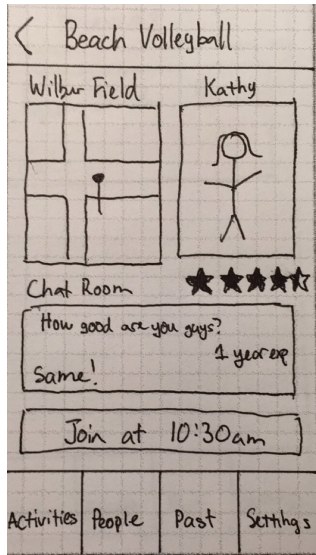 Beach Volleyball
Wilbur Field
Kathy
Chat Room
How good are you guys?
1 year exp
Same!
Join at 10:30am
Activities
People
Past
Settings